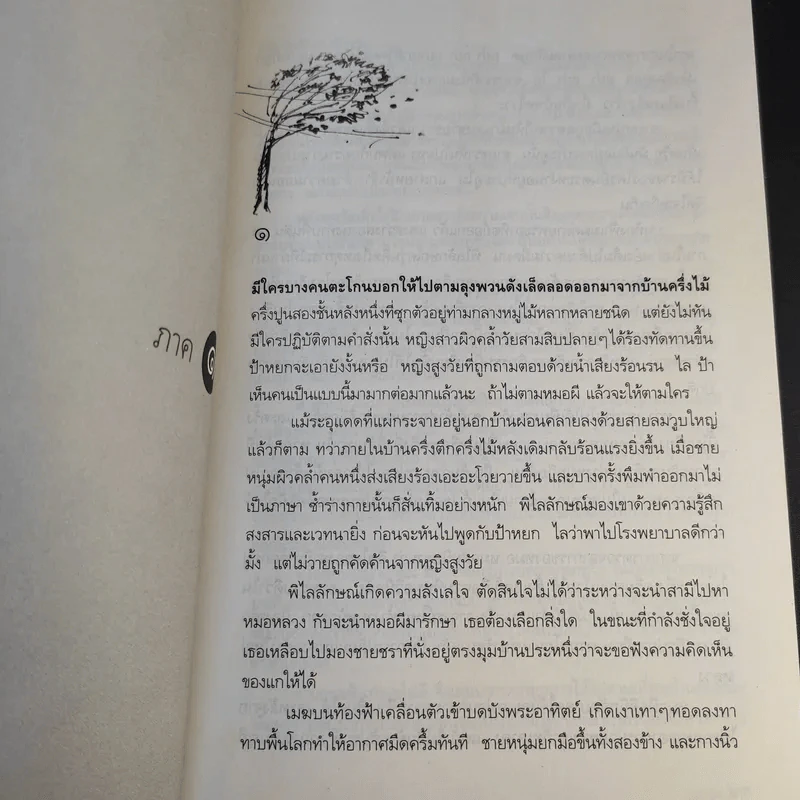 ภาค ๑
๑
มีใครบางคนตะโกนบอกให้ไปตามลุงพวนดังเล็ดลอดออกมาจากบ้านครึ่งไม้
ครึ่งปูนสองชั้นหลังหนึ่งที่ซุกตัวอยู่ท่ามกลางหมู่ไม้หลากหลายชนิด แต่ยังไม่ทัน
มีใครปฏิบัติตามคำสั่งนั้น หญิงสาวผิวคล้ำวัยสามสิบปลายๆได้ร้องทัดทานขึ้น
ป้าหยกจะเอายังงั้นหรือ หญิงสูงวัยที่ถูกถามตอบด้วยน้ำเสียงร้อนรน ไล ป้า
เห็นคนเป็นแบบนี้มามากต่อมากแล้วนะ ถ้าไม่ตามหมอผี แล้วจะให้ตามใคร
แม้ระอุแดดที่แผ่กระจายอยู่นอกบ้านผ่อนคลายลงด้วยสายลมวูบใหญ่
แล้วก็ตาม ทว่าภายในบ้านครึ่งตึกครึ่งไม้หลังเดิมกลับร้อนแรงยิ่งขึ้น เมื่อชาย
หนุ่มผิวคล้ำคนหนึ่งส่งเสียงร้องเอะอะโวยวายขึ้น และบางครั้งพึมพำออกมาไม่
เป็นภาษา ซ้ำร่างกายนั้นก็สั่นเทิ้มอย่างหนัก พิไลลักษณ์มองเขาด้วยความรู้สึก
สงสารและเวทนายิ่ง ก่อนจะหันไปพูดกับป้าหยก ไลว่าพาไปโรงพยาบาลดีกว่า
มั้ง แต่ไม่วายถูกคัดค้านจากหญิงสูงวัย
พิไลลักษณ์เกิดความลังเลใจ ตัดสินใจไม่ได้ว่าระหว่างจะนำสามีไปหา
หมอหลวง กับจะนำหมอผีมารักษา เธอต้องเลือกสิ่งใด ในขณะที่กำลังชั่งใจอยู่
เธอเหลือบไปมองชายชราที่นั่งอยู่ตรงมุมบ้านประหนึ่งว่าจะขอฟังความคิดเห็น
ของแกให้ได้
เมฆบนท้องฟ้าเคลื่อนตัวเข้าบดบังพระอาทิตย์ เกิดเงาเทาๆทอดลงทา
ทาบพื้นโลกทำให้อากาศมืดครึ้มทันที ชายหนุ่มยกมือขึ้นทั้งสองข้าง และกางนิ้ว